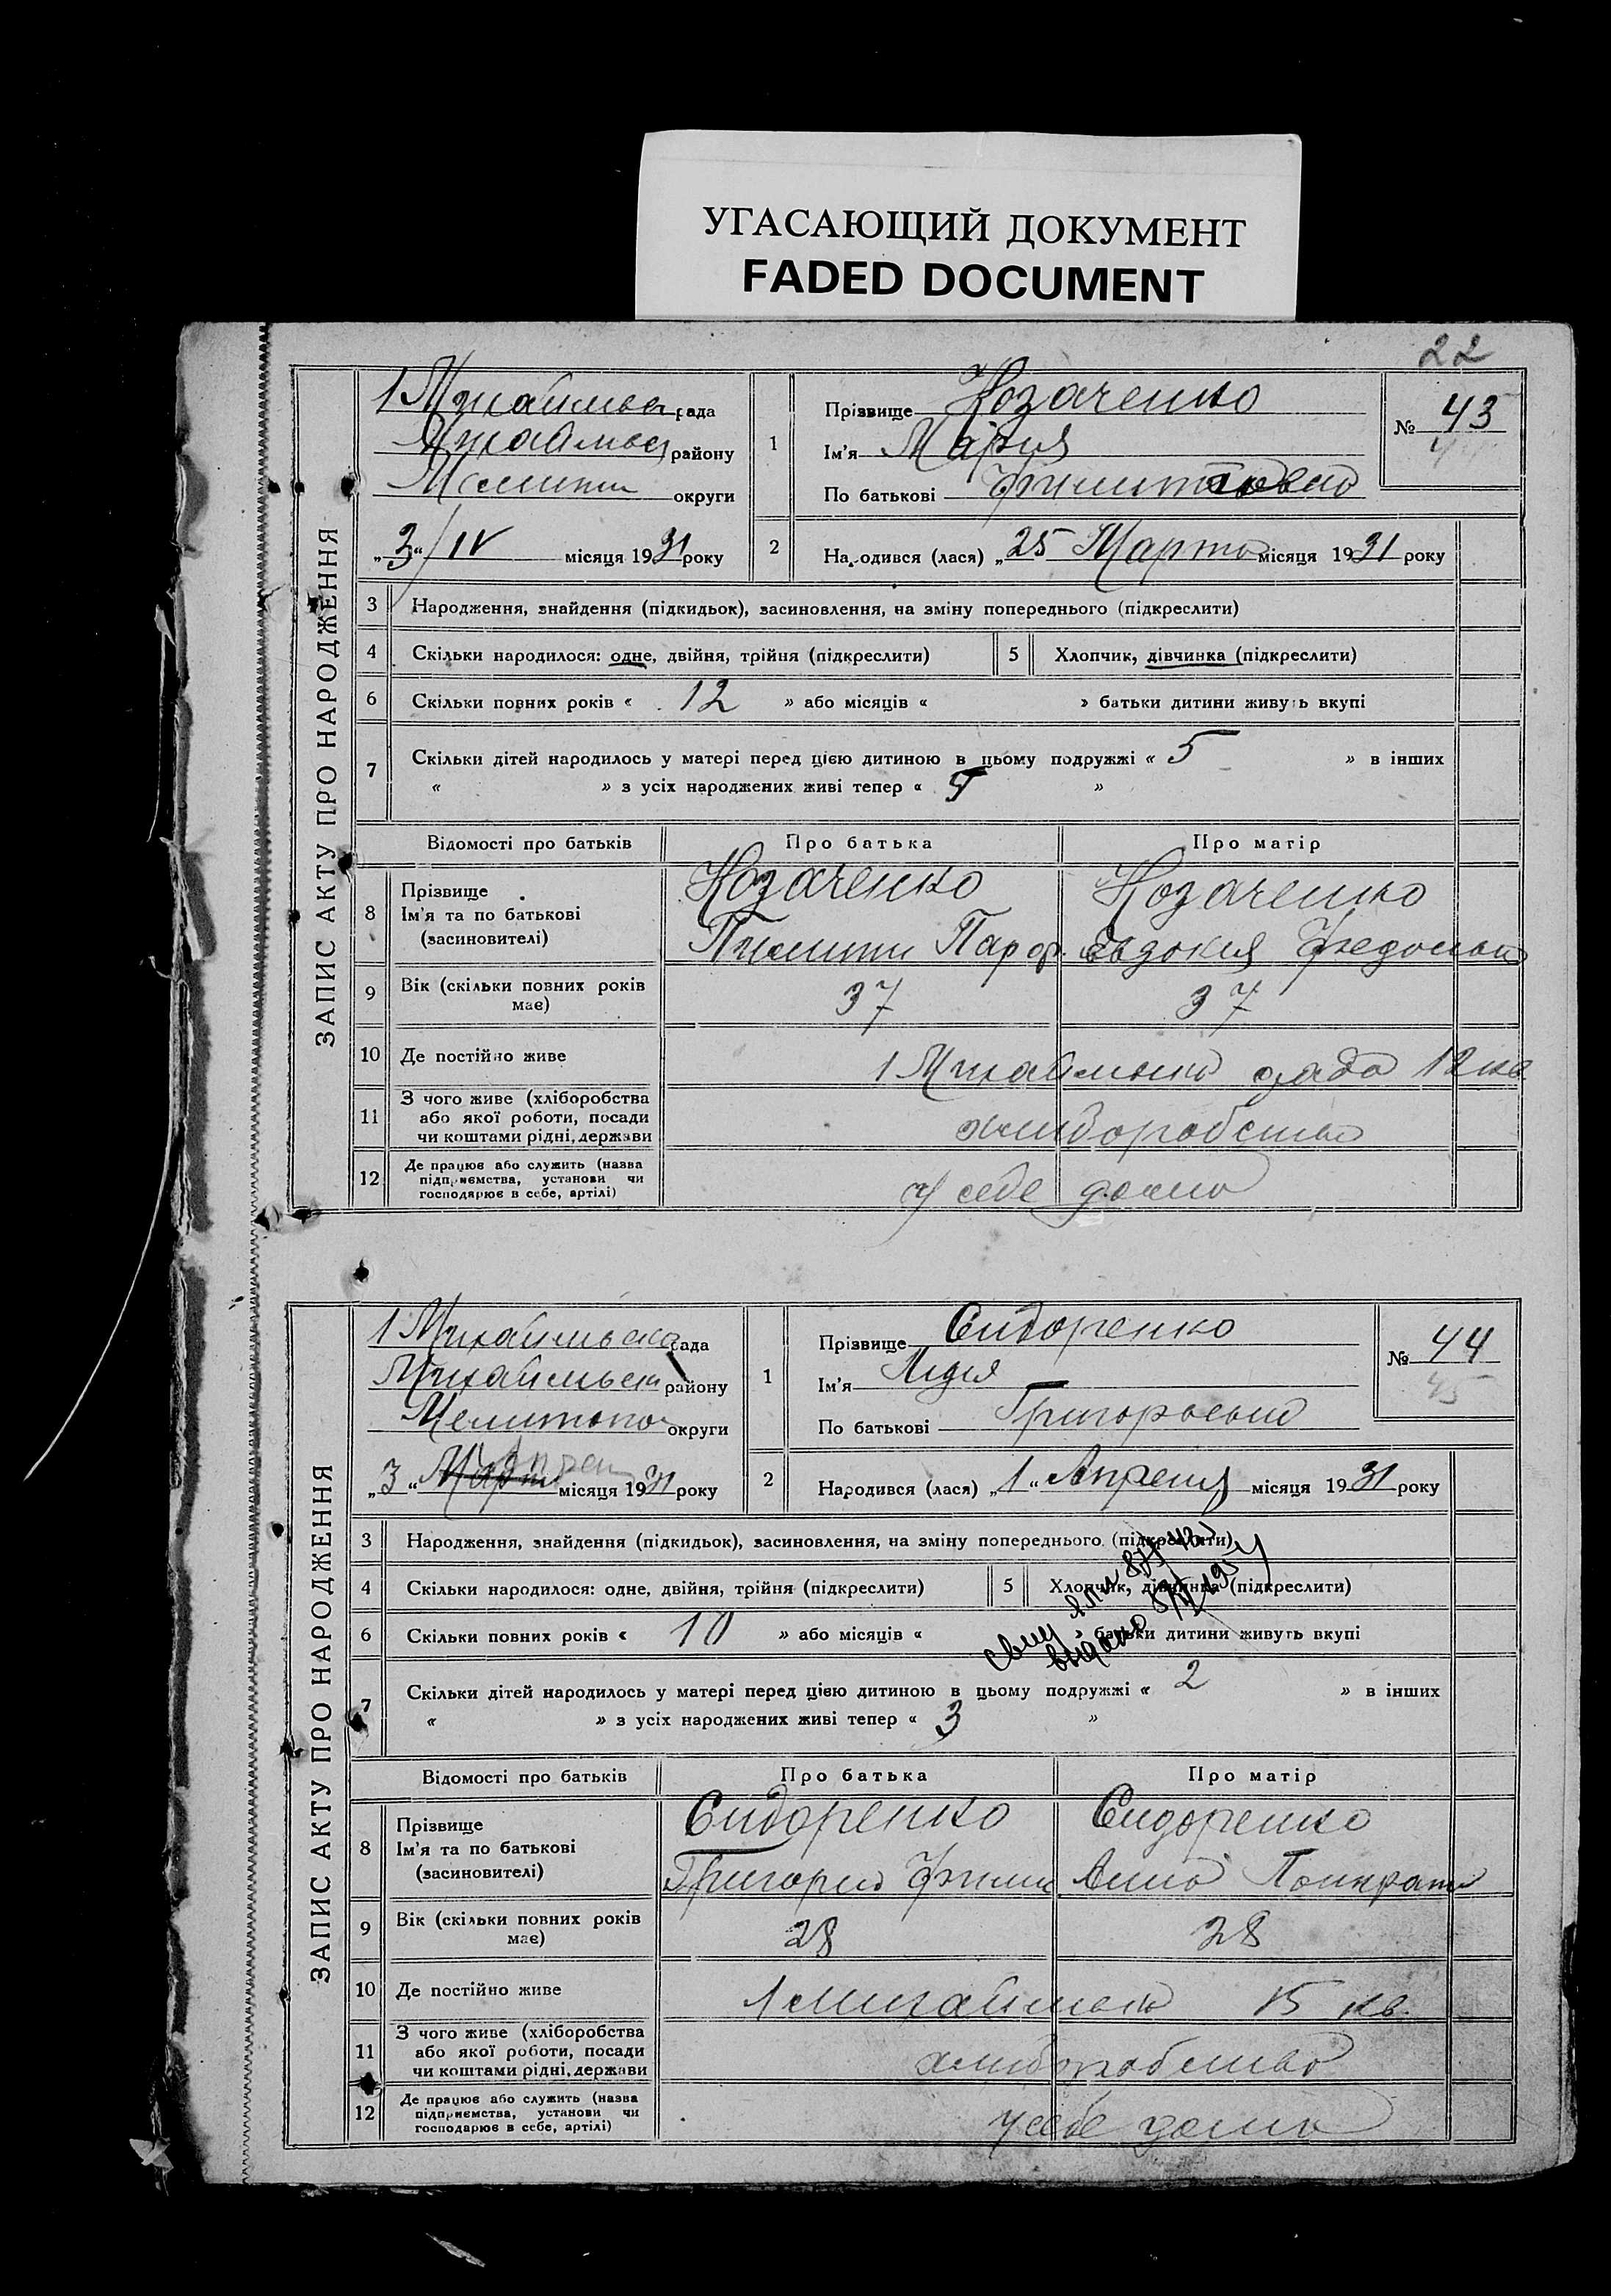 УГАСАЮЩИЙ ДОКУМЕНТ
FADED DOCUMENT
22
ЗАПИС АКТУ ПРО НАРОДЖЕННЯ
1 Михайлівськ рада
району
Мелитоп округи
„3“/IV місяця 1931 року
1
Прізвище Козаченко
Ім'я Мария
По батькові
№ 43
44
2
Народився (лася) „25 Марта місяця 1931 року
3 Народження, знайдення (підкидьок), засиновлення, на зміну попереднього (підкреслити)
4 Скільки народилося: одне, двійня, трійня (підкреслити)
5 Хлопчик, дівчинка (підкреслити)
6 Скільки повних років « 12 » або місяців « » батьки дитини живуть вкупі
7 Скільки дітей народилось у матері перед цією дитиною в цьому подружжі « 5 » в інших
« » з усіх народжених живі тепер « 5 »
Відомості про батьків Про батька Про матір
8 Прізвище
Ім'я та по батькові
(засиновителі)
Козаченко
Парф.
Козаченко
Евдокия
9 Вік (скільки повних років має) 37 37
10 Де постійно живе 1 рада 12 кв
11 З чого живе (хліборобства
або якої роботи, посади
чи коштами рідні, держави
хлиборобство
12 Де працює або служить (назва
підприємства, установи чи
господарює в себе, артілі)
У себе дома
ЗАПИС АКТУ ПРО НАРОДЖЕННЯ
1 Михайлівська рада
району
Мелитопо округи
„3“ Март Апрел місяця 1931 року
1
Прізвище Сидоренко
Ім'я Лидия
По батькові
№ 44
45
2
Народився (лася) „1“ Апреля місяця 1931 року
3 Народження, знайдення (підкидьок), засиновлення, на зміну попереднього (підкреслити)
4 Скільки народилося: одне, двійня, трійня (підкреслити)
5 Хлопчик, дівчинка (підкреслити)
6 Скільки повних років « 10 » або місяців « » батьки дитини живуть вкупі
7 Скільки дітей народилось у матері перед цією дитиною в цьому подружжі « 2 » в інших
« » з усіх народжених живі тепер « 3 »
Відомості про батьків Про батька Про матір
8 Прізвище
Ім'я та по батькові
(засиновителі)
Сидоренко
Григорий Фили
Сидоренко
Анна Панкрат
9 Вік (скільки повних років має) 28 28
10 Де постійно живе 1 15 кв.
11 З чого живе (хліборобства
або якої роботи, посади
чи коштами рідні, держави
хлиборобство
12 Де працює або служить (назва
підприємства, установи чи
господарює в себе, артілі)
у себе дома